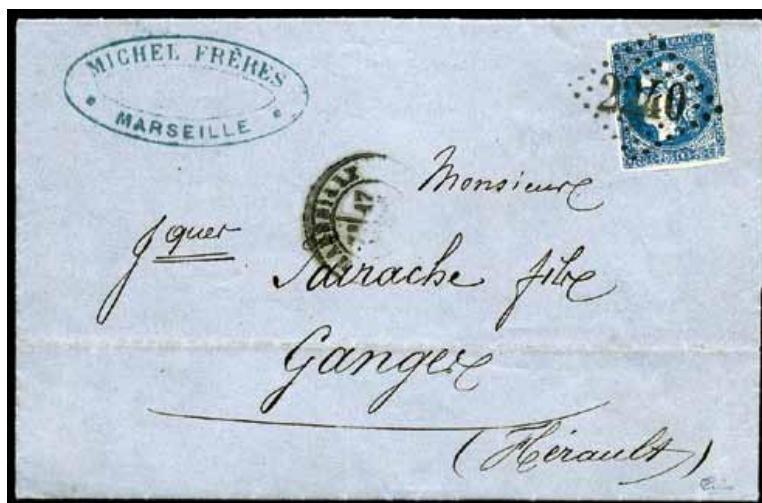 MICHEL FRÈRES
MARSEILLE
2240
MARSEILLE
17
Monsieur
Jques
fils
Ganges
(Hérault)